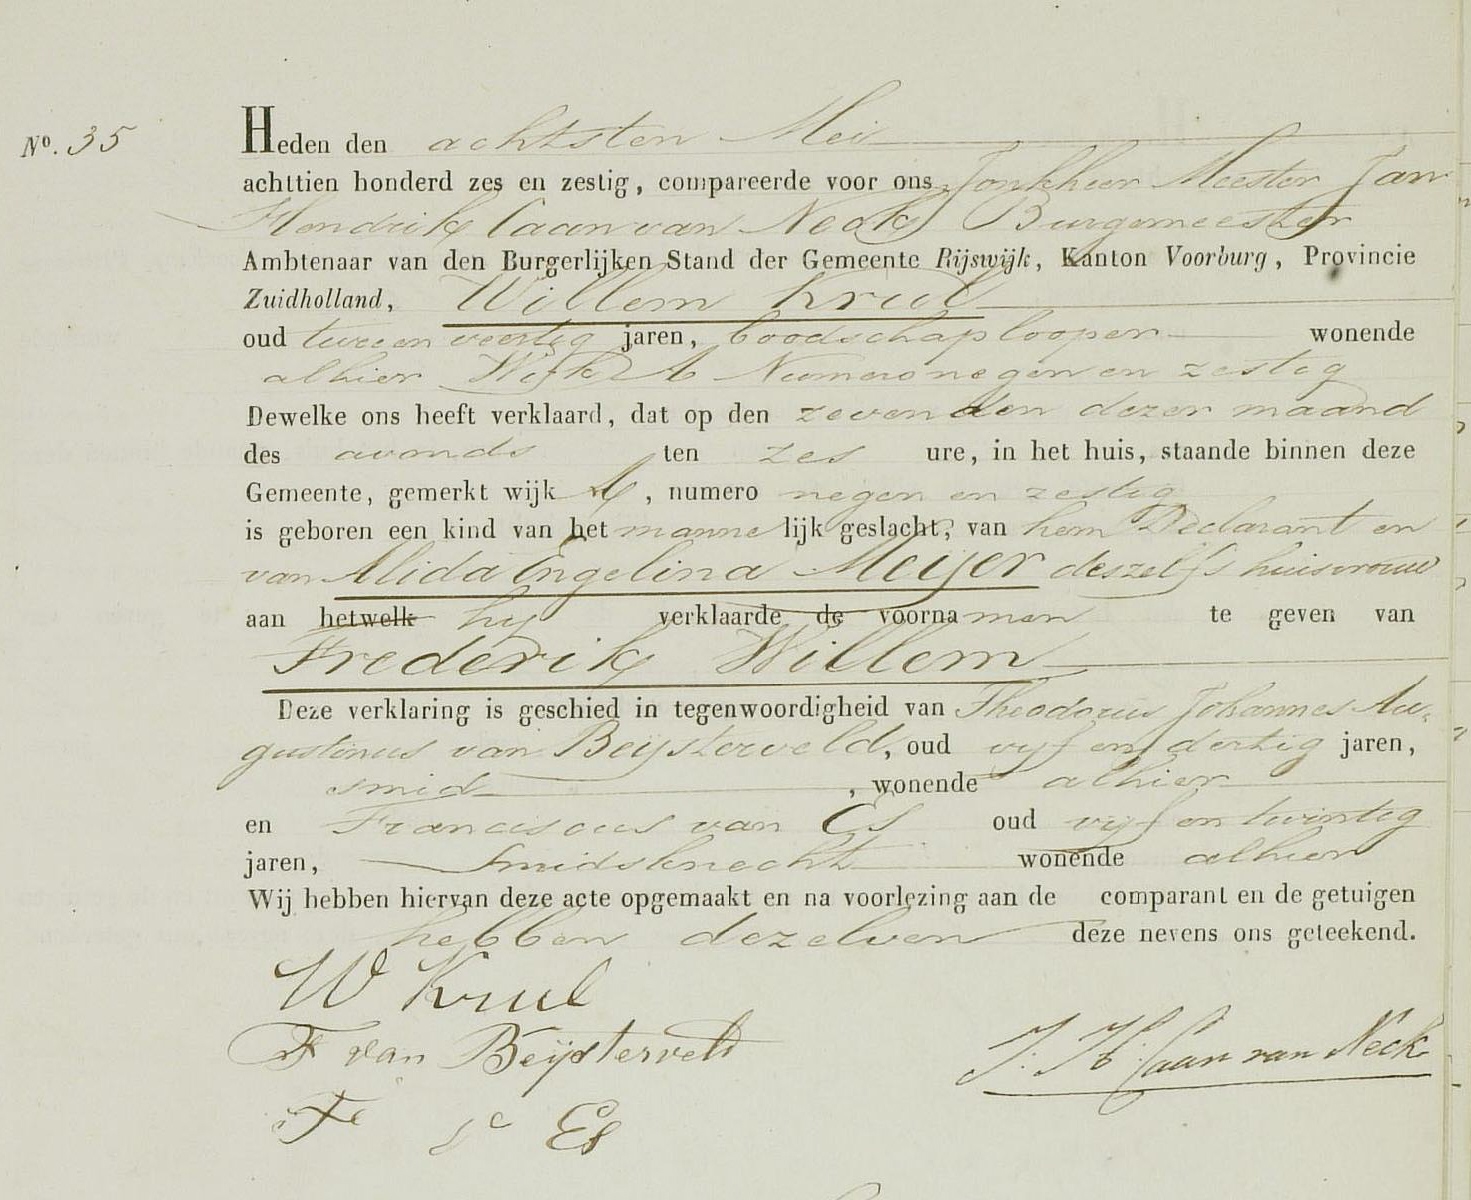 Nº. 35
Heden den achtsten Mei
achttien honderd zes en zestig, compareerde voor ons Jonkheer Meester Jan
Hendrik Caan van Neck Burgemeester
Ambtenaar van den Burgerlijken Stand der Gemeente Rijswijk, Kanton Voorburg, Provincie
Zuidholland, Willem Krul
oud tweeen veertig jaren, boodschaplooper wonende
alhier Wijk A Numero negen en zestig
Dewelke ons heeft verklaard, dat op den zevenden dezer maand
des avonds ten zes ure, in het huis, staande binnen deze
Gemeente, gemerkt wijk A, numero negen en zestig
is geboren een kind van het mannelijk geslacht, van hem Declarant en
van Alida Engelina Meijer deszelfs huisvrouw
aan hetwelk hij verklaarde de voornamen te geven van
Frederik Willem
Deze verklaring is geschied in tegenwoordigheid van Theodorus Johannes Au-
gustinus van Beijsterveld, oud vijf en dertig jaren,
smid, wonende alhier
en Franciscus van Es oud vijf en twintig
jaren, Smidsknecht wonende alhier
Wij hebben hiervan deze acte opgemaakt en na voorlezing aan de comparant en de getuigen
hebben dezelven deze nevens ons geteekend.
W Krul
van Beijsterveld
J. H. Caan van Neck
Es